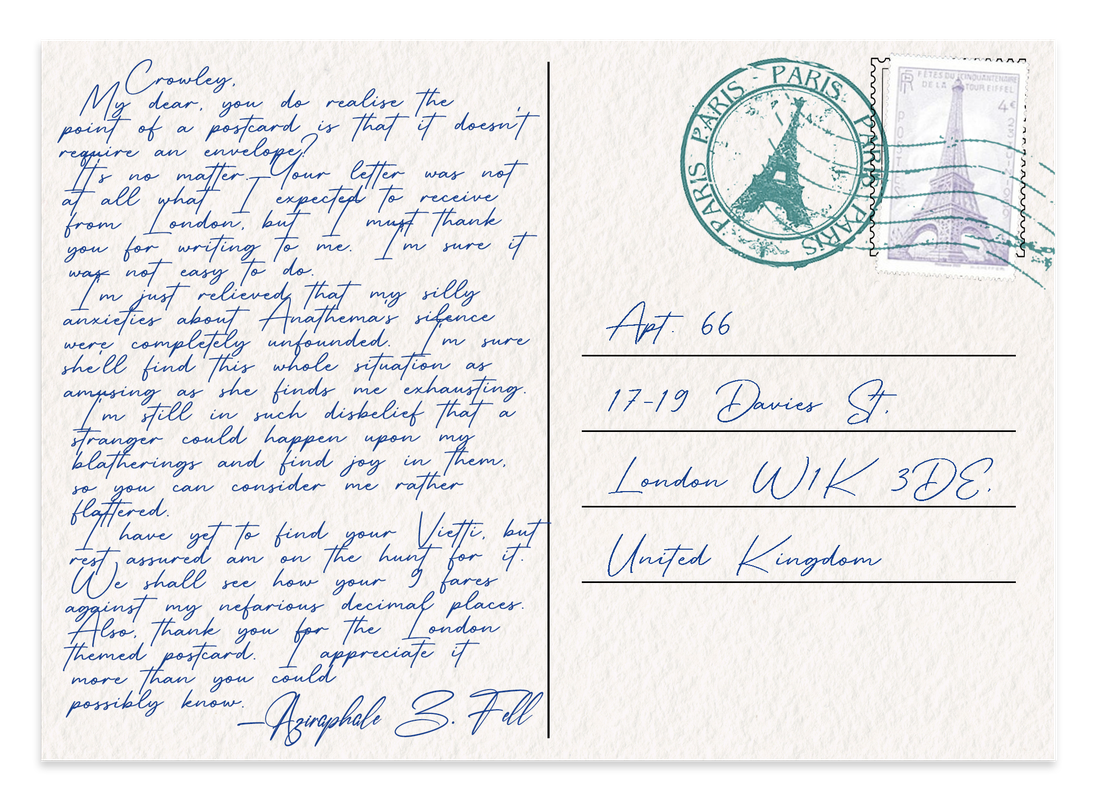 Crowley,
My dear, you do realise the
point of a postcard is that it doesn't
require an envelope?
It's no matter. Your letter was not
at all what I expected to receive
from London, but I must thank
you for writing to me. I'm sure it
was not easy to do.
I'm just relieved that my silly
anxieties about Anathema's silence
were completely unfounded. I'm sure
she'll find this whole situation as
amusing as she finds me exhausting.
I'm still in such disbelief that a
stranger could happen upon my
blatherings and find joy in them,
so you can consider me rather
flattered.
I have yet to find your Vietti, but
rest assured am on the hunt for it.
We shall see how your 9 fares
against my nefarious decimal places.
Also, thank you for the London
themed postcard. I appreciate it
more than you could
possibly know.
—Aziraphale Z. Fell
PARIS - PARIS PARIS PARIS PARIS PARIS
RF
FÊTES DU CINQUANTENAIRE
DE LA TOUR EIFFEL
4€
POSTES
Apt. 66
17-19 Davies St.
London W1K 3DE.
United Kingdom